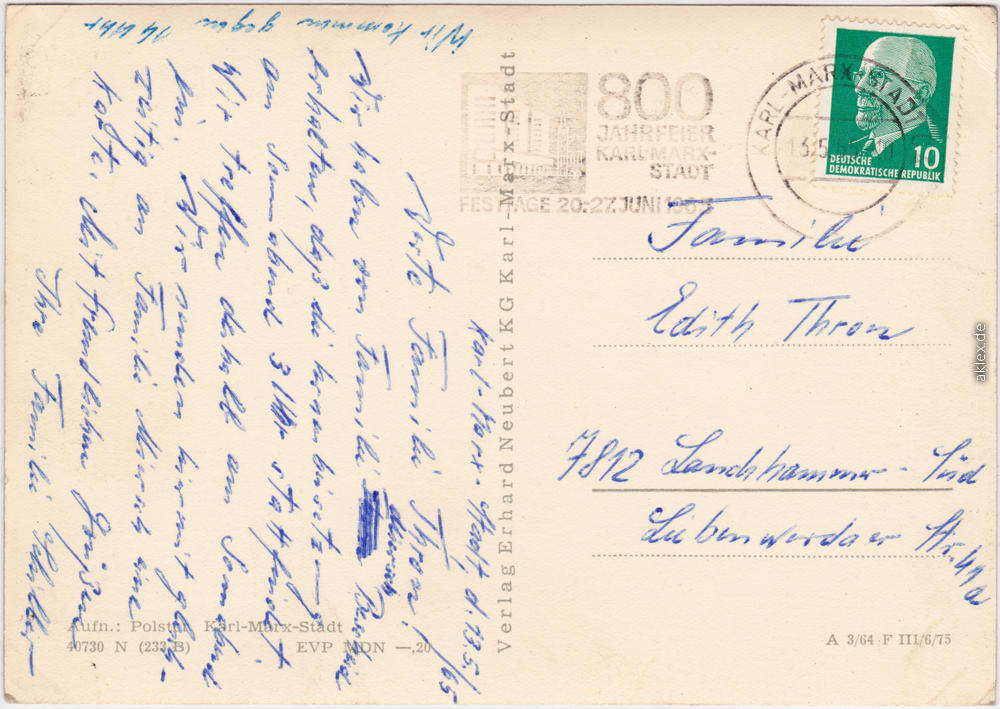 Wir kommen gegen 14 Uhr
Karl-Marx-Stadt d. 13.5./65
Werte Familie Thron!
Wir haben von Familie Münnich
erhalten, daß die
am Sonnabend 3 Uhr stattfindet
Wir treffen deshalb am Sonnabend
ein. Wir senden hiermit gleich-
zeitig an Familie eine
Karte. Mit freundlichen Grüßen
Ihre Familie
800
JAHRFEIER
KARL-MARX-
STADT
FESTTAGE 20.-27. JUNI 1965
KARL-MARX-STADT
DEUTSCHE
DEMOKRATISCHE REPUBLIK
10
Familie
Edith Thron
7812 Lauchhammer-Süd
Liebenwerdaer Str. 41a
Verlag Erhard Neubert KG Karl-Marx-Stadt
Aufn.: Polster, Karl-Marx-Stadt
40730 N (233 B) EVP MDN —,20
A 3/64 F III/6/75
aklex.de